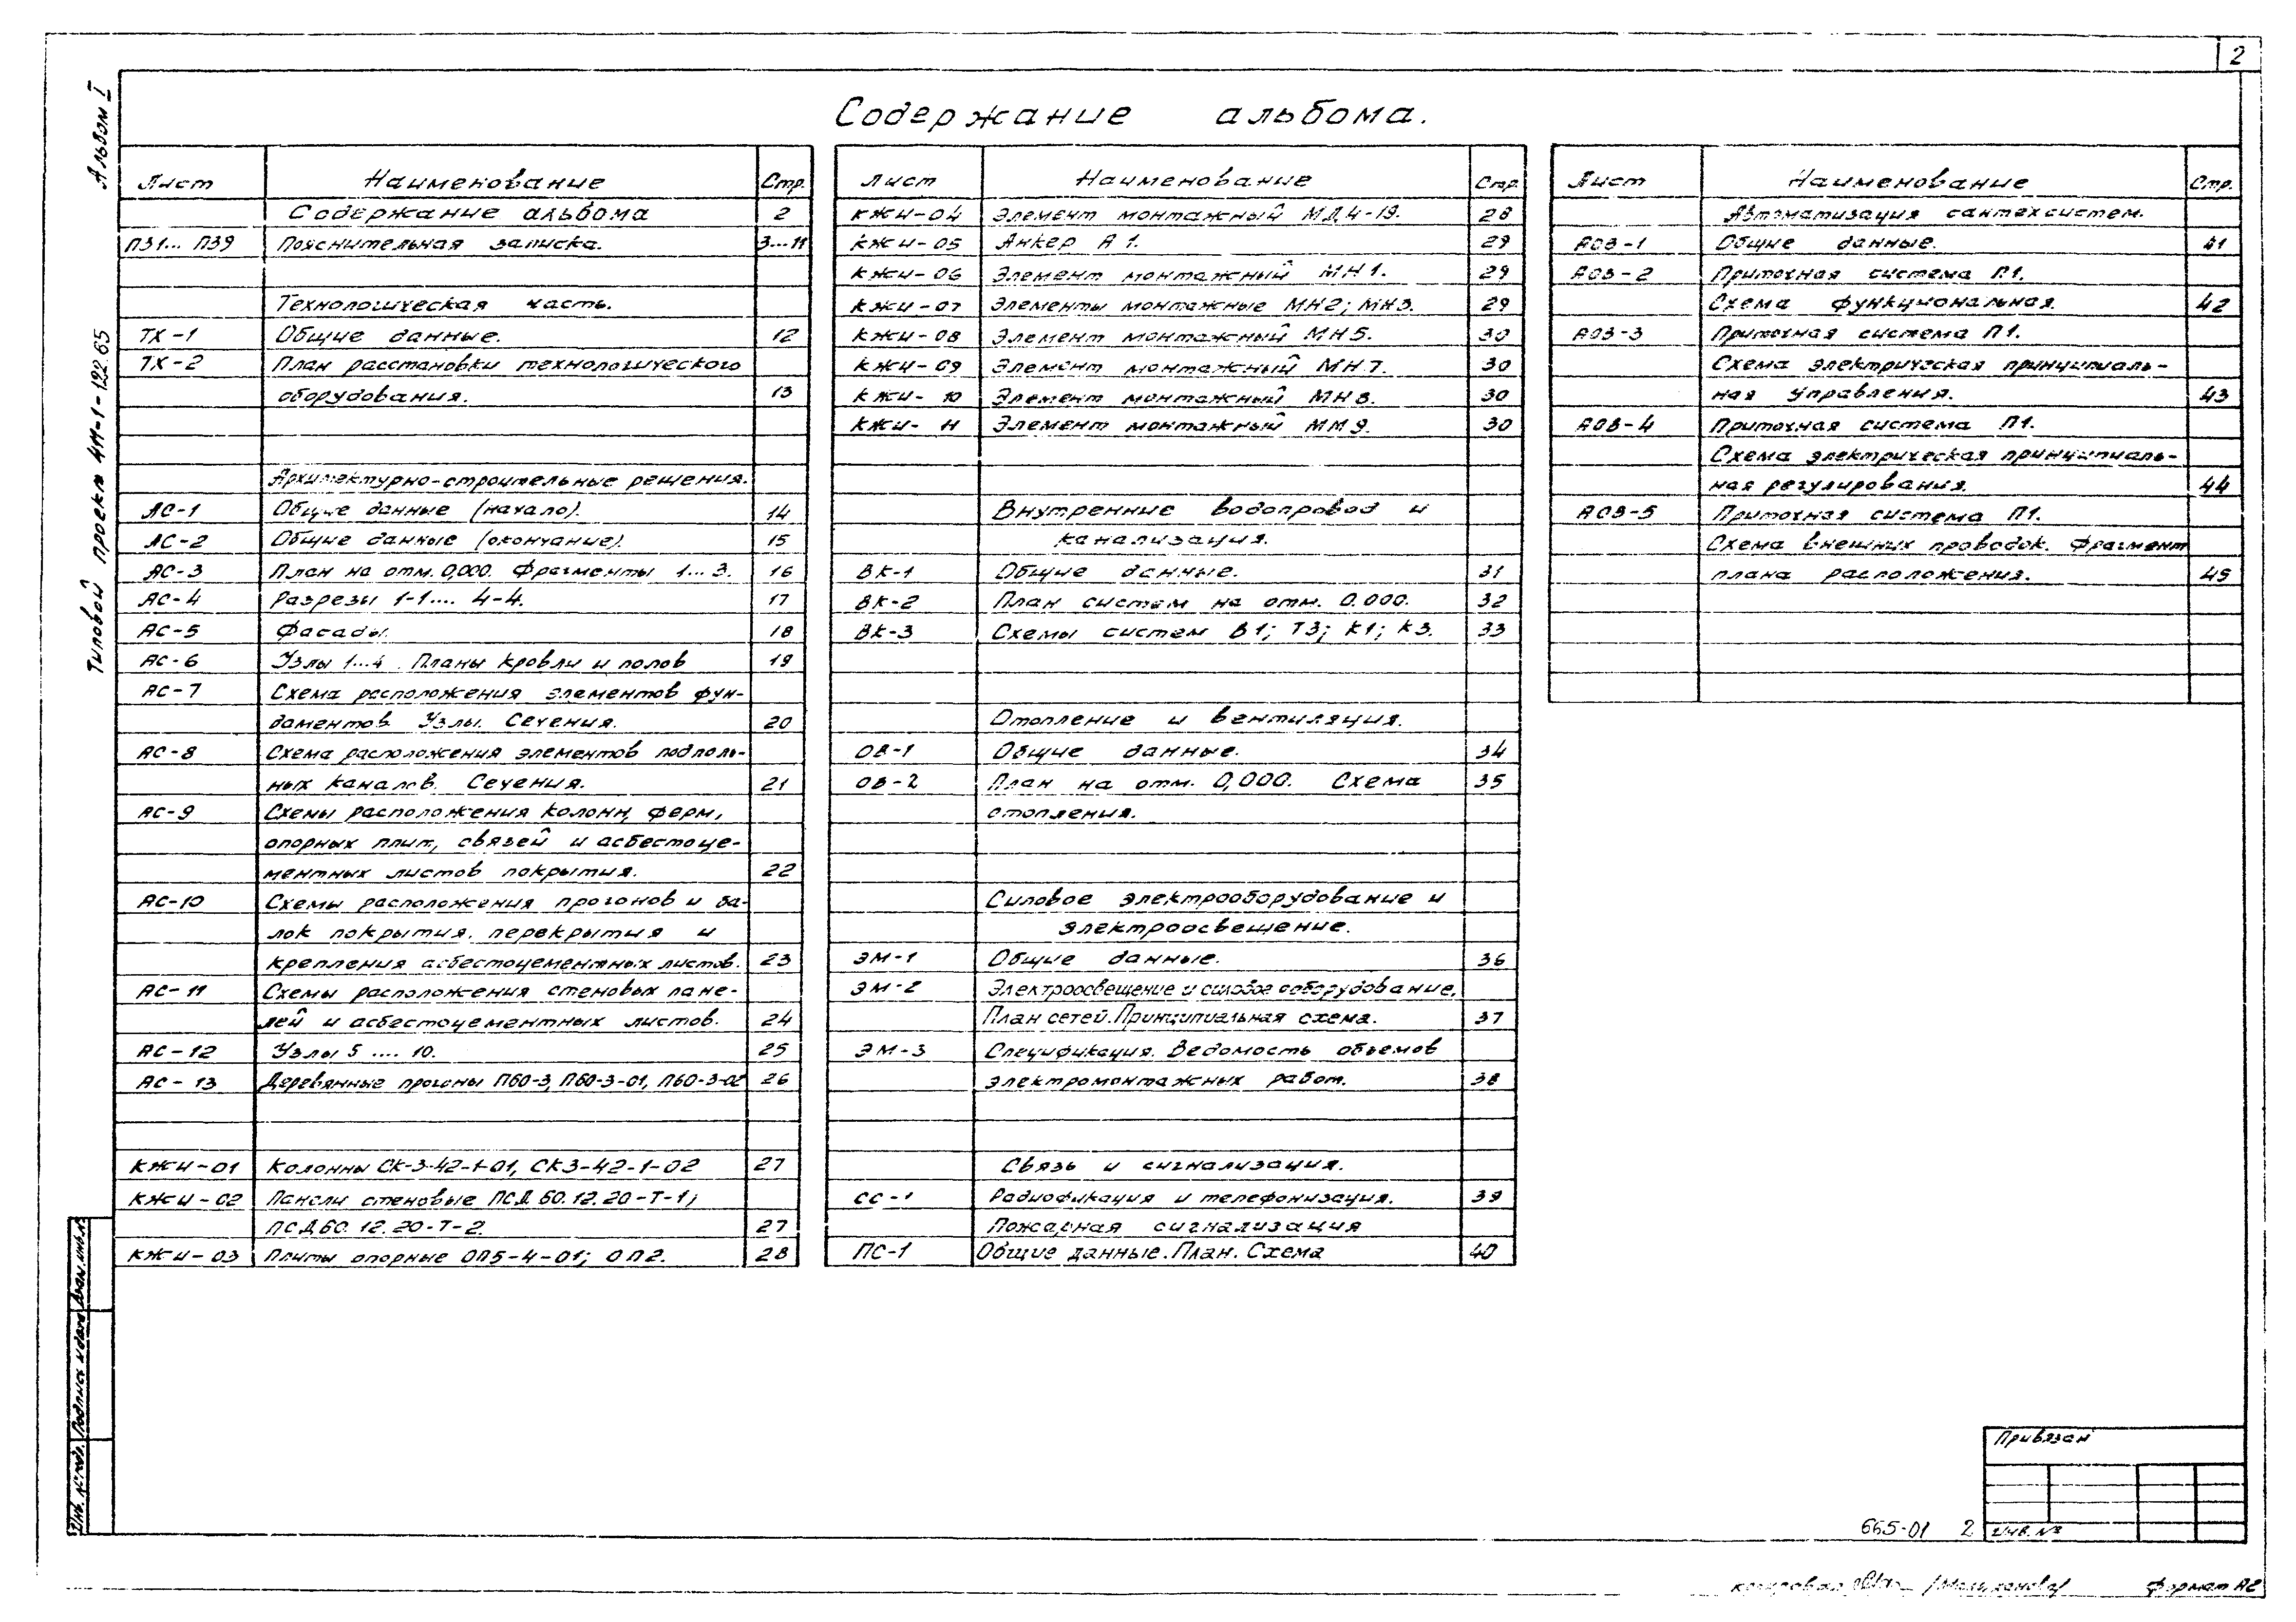 2
Альбом I
Типовой проект 411-1-122.85
Содержание альбома.
Лист Наименование Стр.
Содержание альбома 2
ПЗ1... ПЗ9 Пояснительная записка. 3...11
Технологическая часть.
ТХ-1 Общие данные. 12
ТХ-2 План расстановки технологического
оборудования. 13
Архитектурно-строительные решения.
АС-1 Общие данные (начало). 14
АС-2 Общие данные (окончание). 15
АС-3 План на отм. 0,000. Фрагменты 1...3. 16
АС-4 Разрезы 1-1.... 4-4. 17
АС-5 Фасады. 18
АС-6 Узлы 1...4. Планы кровли и полов 19
АС-7 Схема расположения элементов фун-
даментов. Узлы. Сечения. 20
АС-8 Схема расположения элементов подполь-
ных каналов. Сечения. 21
АС-9 Схемы расположения колонн, ферм,
опорных плит, связей и асбестоце-
ментных листов покрытия. 22
АС-10 Схемы расположения прогонов и ба-
лок покрытия, перекрытия и
крепления асбестоцементных листов. 23
АС-11 Схемы расположения стеновых пане-
лей и асбестоцементных листов. 24
АС-12 Узлы 5 .... 10. 25
АС-13 Деревянные прогоны П60-3, П60-3-01, П60-3-02 26
КЖИ-01 Колонны СК-3-42-1-01, СК3-42-1-02 27
КЖИ-02 Панели стеновые ПСД 60.12.20-Т-1;
ПСД 60.12.20-Т-2. 27
КЖИ-03 Плиты опорные ОП5-4-01; ОП2. 28
Лист Наименование Стр.
КЖИ-04 Элемент монтажный МД4-19. 28
КЖИ-05 Анкер А1. 29
КЖИ-06 Элемент монтажный МН1. 29
КЖИ-07 Элементы монтажные МН2; МН3. 29
КЖИ-08 Элемент монтажный МН5. 30
КЖИ-09 Элемент монтажный МН7. 30
КЖИ-10 Элемент монтажный МН8. 30
КЖИ-11 Элемент монтажный МН9. 30
Внутренние водопровод и
канализация.
ВК-1 Общие данные. 31
ВК-2 План систем на отм. 0.000. 32
ВК-3 Схемы систем В1; Т3; К1; К3. 33
Отопление и вентиляция.
ОВ-1 Общие данные. 34
ОВ-2 План на отм. 0,000. Схема 35
отопления.
Силовое электрооборудование и
электроосвещение.
ЭМ-1 Общие данные. 36
ЭМ-2 Электроосвещение и силовое оборудование.
План сетей. Принципиальная схема. 37
ЭМ-3 Спецификация. Ведомость объемов
электромонтажных работ. 38
Связь и сигнализация.
СС-1 Радиофикация и телефонизация. 39
Пожарная сигнализация
ПС-1 Общие данные. План. Схема 40
Лист Наименование Стр.
Автоматизация сантехсистем.
АОВ-1 Общие данные. 41
АОВ-2 Приточная система П1.
Схема функциональная. 42
АОВ-3 Приточная система П1.
Схема электрическая принципиаль-
ная управления. 43
АОВ-4 Приточная система П1.
Схема электрическая принципиаль-
ная регулирования. 44
АОВ-5 Приточная система П1.
Схема внешних проводок. Фрагмент
плана расположения. 45
Инв. № подл. Подпись и дата Взам. инв. №
Привязан
Инв. №
665-01 2
Копировал
Формат А2